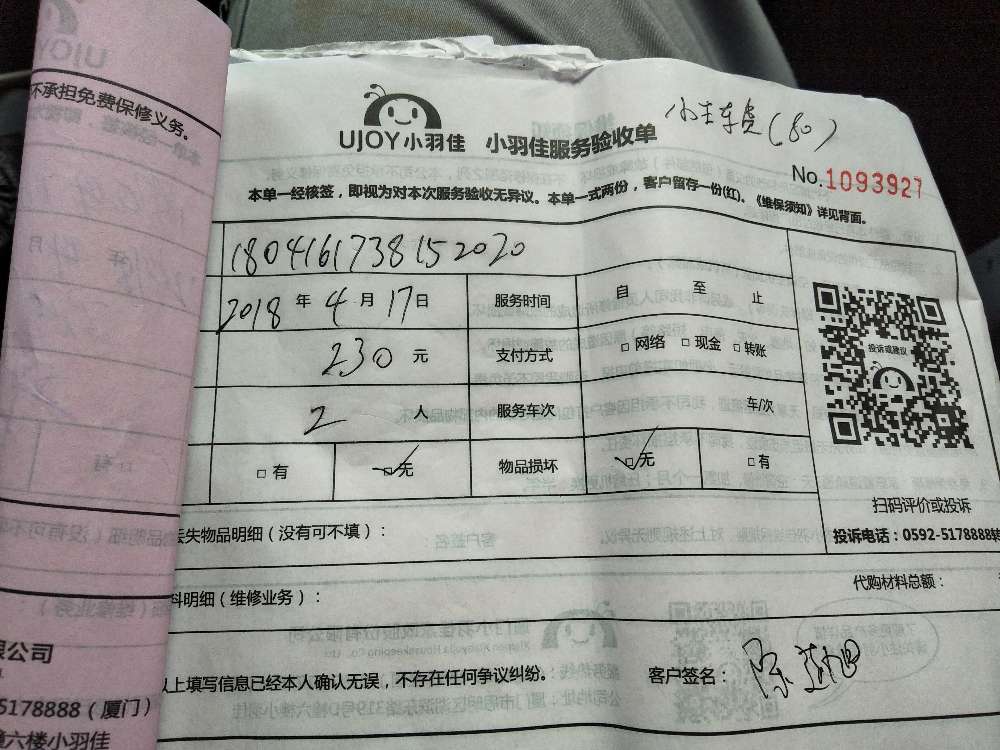 不承担免费保修义务。
UJOY小羽佳 小羽佳服务验收单
(80)
No.1093927
本单一经核签，即视为对本次服务验收无异议。本单一式两份，客户留存一份(红)。《维保须知》详见背面。
1804161738152020
2018年4月17日 服务时间 自 至 止
230元 支付方式 □网络 □现金 □转账
2人 服务车次 车/次
□有 □无 物品损坏 □无 □有
投诉或建议
扫码评价或投诉
投诉电话：0592-5178888转
失物品明细（没有可不填）：
代购材料总额：
料明细（维修业务）：
以上填写信息已经本人确认无误，不存在任何争议纠纷。
客户签名：
限公司
5178888（厦门）
六楼小羽佳